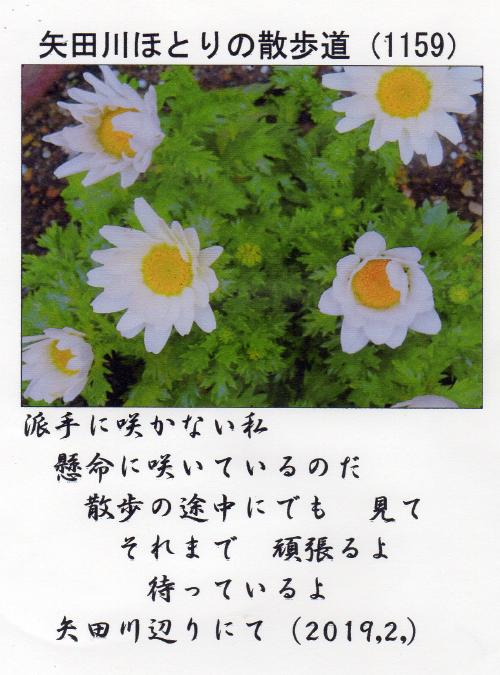 矢田川ほとりの散歩道（1159）
派手に咲かない私
懸命に咲いているのだ
散歩の途中にでも　見て
それまで　頑張るよ
待っているよ
矢田川辺りにて（2019,2,）